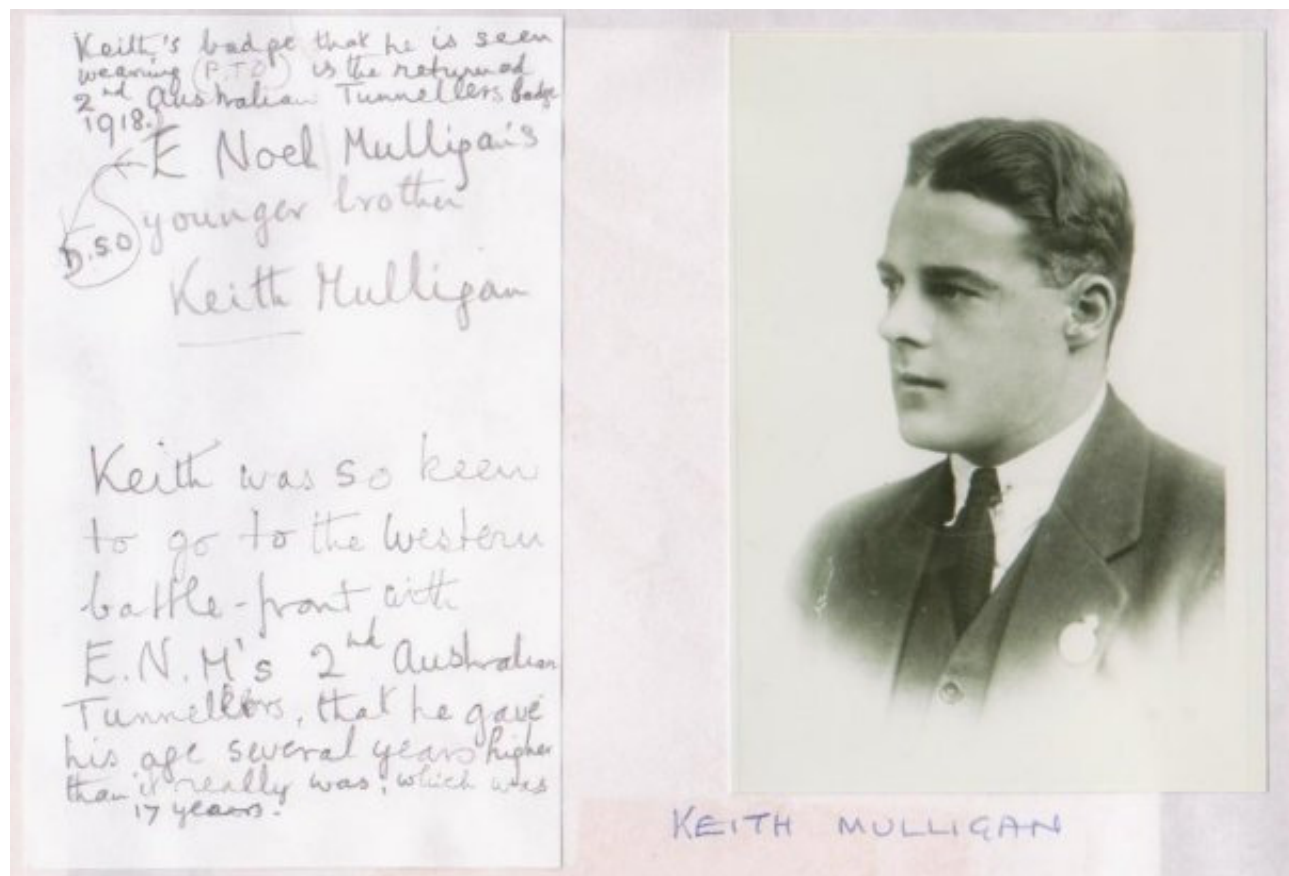 Keith's badge that he is seen
wearing (P.T.O) is the returned
2nd Australian Tunnellers Badge
1918.)
E Noel Mulligan's
younger brother
D.S.O
Keith Mulligan
Keith was so keen
to go to the Western
battle-front with
E.N.M's 2nd Australian
Tunnellers, that he gave
his age several years higher
than it really was, which was
17 years.
KEITH MULLIGAN